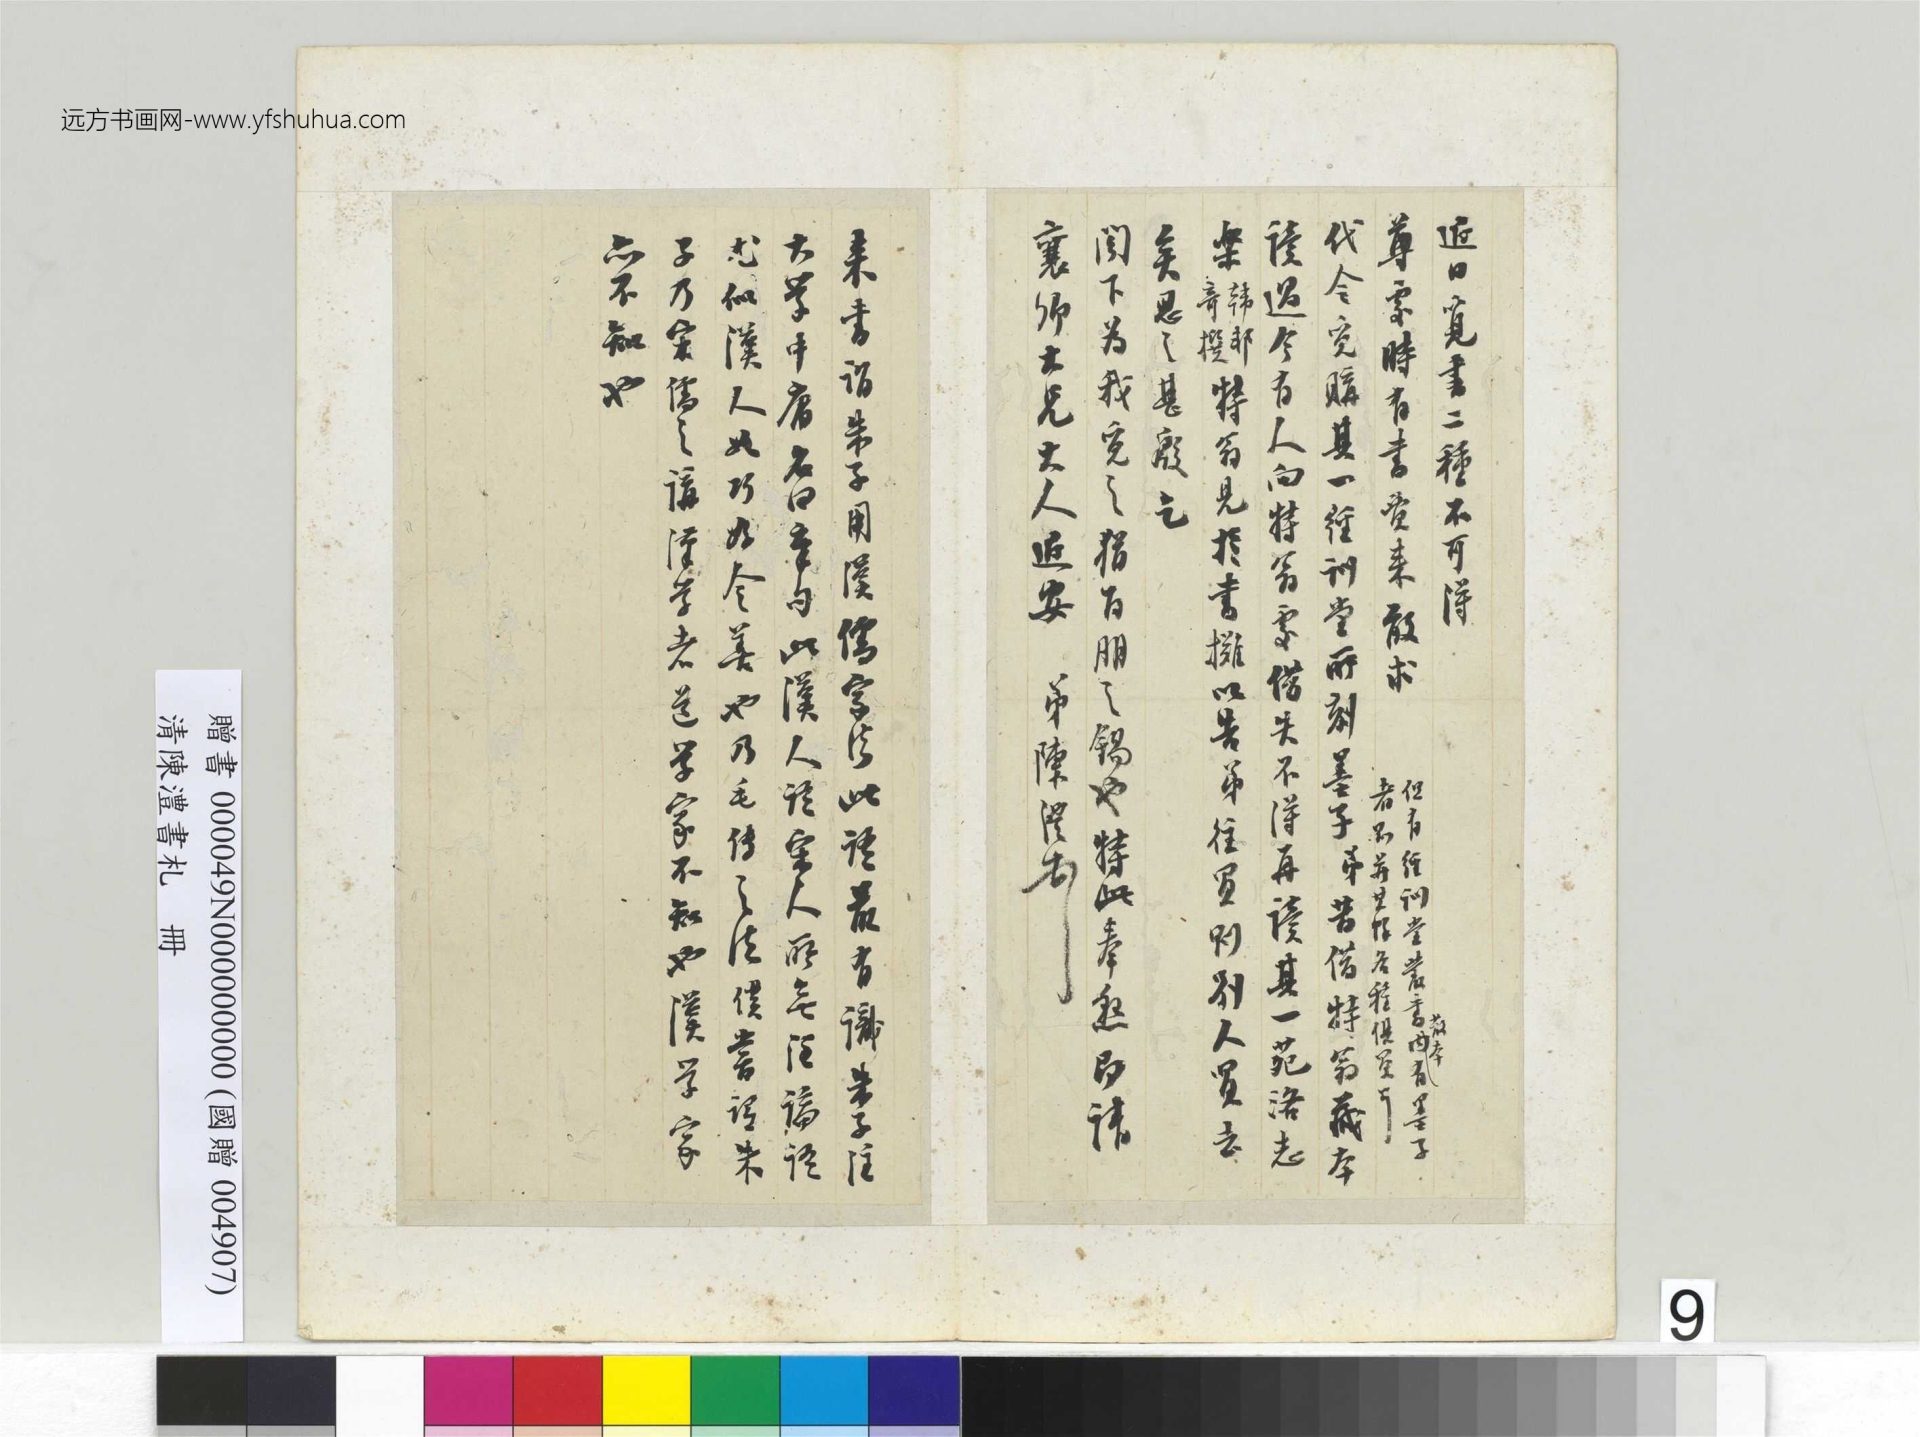 远方书画网-www.yfshuhua.com
近日覓書二種不可得
尊處時有書賣來敢求
但有經訓堂叢書內散本有墨子
者不若其餘各種俱買
代令覓購其一經訓堂所刻墨子弟昔借特翁藏本
讀過今有人向特翁處借失不得再讀其一苑洛志
樂韓邦奇撰特翁見於書攤以告弟往買則別人買去
矣思之甚殷乞
閣下為我覓之猶百朋之錫也特此奉懇即請
襄卿大兄大人近安 弟陳澧
來書謂朱子用漢儒家法此語最有識朱子注
大學中庸名曰章句此漢人語宋人所無注論語
尤似漢人如巧好令善也乃毛傳之法僕嘗謂朱
子乃宋儒之講漢學者道學家不知也漢學家
亦不知也
贈書 000049N000000000 (國贈 004907)
清陳澧書札 冊
9